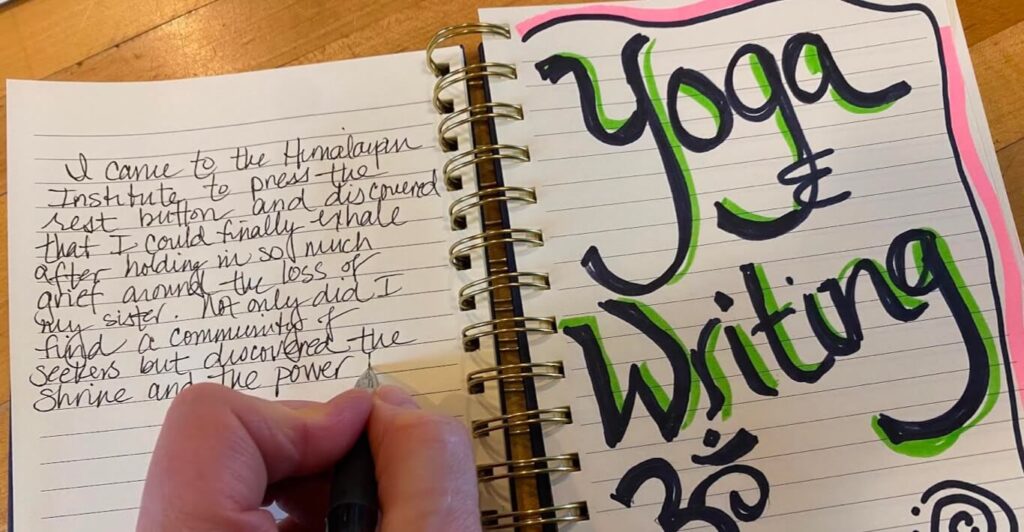 I came to the Himalayan
Institute to press the
rest button and discovered
that I could finally exhale
after holding in so much
grief around the loss of
my sister. Not only did I
find a community of
seekers but discovered the
Shrine and the power
Yoga
&
Writing
ॐ